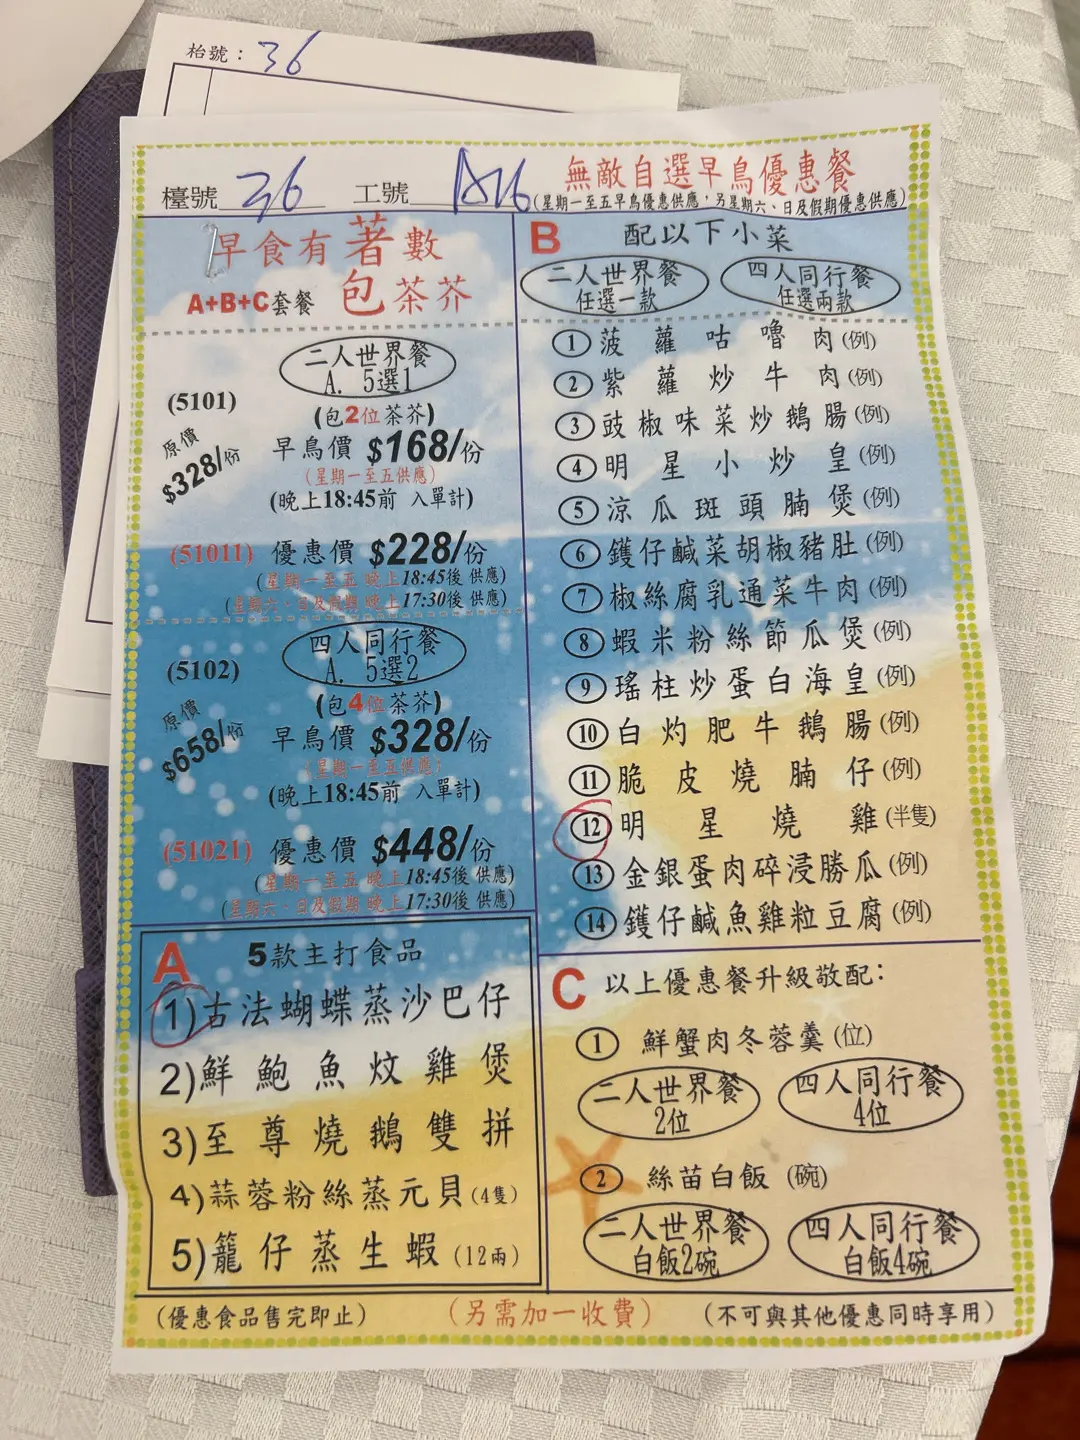 枱號：36
檯號 36 工號 A16
無敵自選早鳥優惠餐
(星期一至五早鳥優惠供應，另星期六、日及假期優惠供應)
早食有著數
A+B+C套餐 包茶芥
二人世界餐
A. 5選1
(5101)
(包2位茶芥)
原價
$328/份
早鳥價 $168/份
(星期一至五供應)
(晚上18:45前 入單計)
(51011) 優惠價 $228/份
(星期一至五 晚上18:45後 供應)
(星期六、日及假期 晚上17:30後 供應)
四人同行餐
A. 5選2
(5102)
(包4位茶芥)
原價
$658/份
早鳥價 $328/份
(星期一至五供應)
(晚上18:45前 入單計)
(51021) 優惠價 $448/份
(星期一至五 晚上18:45後 供應)
(星期六、日及假期 晚上17:30後 供應)
A 5款主打食品
1)古法蝴蝶蒸沙巴仔
2)鮮鮑魚炆雞煲
3)至尊燒鵝雙拼
4)蒜蓉粉絲蒸元貝(4隻)
5)籠仔蒸生蝦(12兩)
B 配以下小菜
二人世界餐
任選一款
四人同行餐
任選兩款
1 菠蘿咕嚕肉(例)
2 紫蘿炒牛肉(例)
3 豉椒味菜炒鵝腸(例)
4 明星小炒皇(例)
5 涼瓜斑頭腩煲(例)
6 鑊仔鹹菜胡椒豬肚(例)
7 椒絲腐乳通菜牛肉(例)
8 蝦米粉絲節瓜煲(例)
9 瑤柱炒蛋白海皇(例)
10 白灼肥牛鵝腸(例)
11 脆皮燒腩仔(例)
12 明星燒雞(半隻)
13 金銀蛋肉碎浸勝瓜(例)
14 鑊仔鹹魚雞粒豆腐(例)
C 以上優惠餐升級敬配：
1 鮮蟹肉冬蓉羹(位)
二人世界餐
2位
四人同行餐
4位
2 絲苗白飯(碗)
二人世界餐
白飯2碗
四人同行餐
白飯4碗
(優惠食品售完即止) (另需加一收費) (不可與其他優惠同時享用)